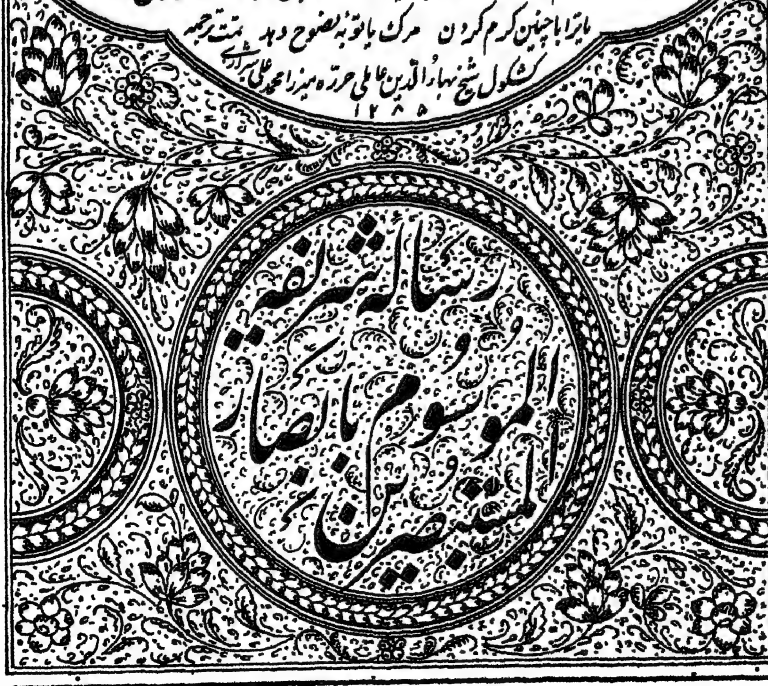 یا ترا با چنین کرم کردن مرگ با توبهٔ نصوح دهد تمت ترجمه
کشکول شیخ بهاء الدین عاملی حرره میرزا محمد علی شیرازی
۱۲۸۵
رساله شریفه
الموسوم بابصار
المستبصرین